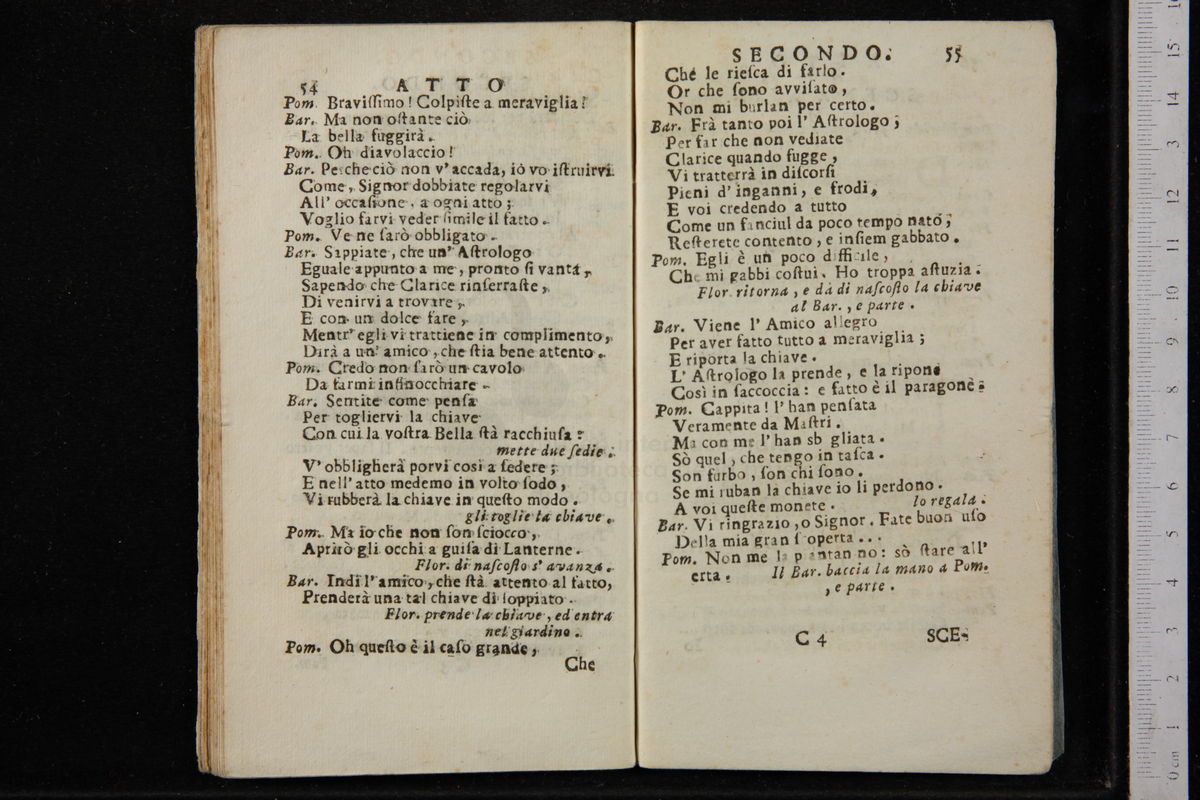 54 ATTO
Pom. Braviſſimo! Colpiſte a meraviglia!
Bar. Ma non oſtante ciò
La bella fuggirà.
Pom. Oh diavolaccio!
Bar. Perche ciò non v' accada, io vo iſtruirvi.
Come, Signor dobbiate regolarvi
All' occaſione, a ogni atto;
Voglio farvi veder ſimile il fatto.
Pom. Ve ne ſarò obbligato.
Bar. Sappiate, che un' Aſtrologo
Eguale appunto a me, pronto ſi vanta,
Sapendo che Clarice rinſerraſte,
Di venirvi a trovare,
E con un dolce fare,
Mentr' egli vi trattiene in complimento,
Dirà a un' amico, che ſtia bene attento.
Pom. Credo non ſarò un cavolo
Da farmi infinocchiare.
Bar. Sentite come penſa
Per togliervi la chiave
Con cui la voſtra Bella ſtà racchiuſa:
mette due ſedie.
V' obbligherà porvi così a ſedere;
E nell' atto medemo in volto ſodo,
Vi rubberà la chiave in queſto modo.
gli toglie la chiave.
Pom. Ma io che non ſon ſciocco,
Aprirò gli occhi a guiſa di Lanterne.
Flor. di naſcoſto s' avanza.
Bar. Indi l' amico, che ſtà attento al fatto,
Prenderà una tal chiave di ſoppiato.
Flor. prende la chiave, ed entra
nel giardino.
Pom. Oh queſto è il caſo grande,
Che
SECONDO. 55
Ché le rieſca di farlo.
Or che ſono avviſato,
Non mi burlan per certo.
Bar. Frà tanto poi l' Aſtrologo;
Per far che non vediate
Clarice quando fugge,
Vi tratterrà in diſcorſi
Pieni d' inganni, e frodi,
E voi credendo a tutto
Come un fanciul da poco tempo nato;
Reſterete contento, e inſiem gabbato.
Pom. Egli è un poco difficile,
Che mi gabbi coſtui. Ho troppa aſtuzia.
Flor. ritorna, e dà di naſcoſto la chiave
al Bar., e parte.
Bar. Viene l' Amico allegro
Per aver fatto tutto a meraviglia;
E riporta la chiave.
L' Aſtrologo la prende, e la ripone
Così in ſaccoccia: e fatto è il paragone.
Pom. Cappita! l' han penſata
Veramente da Maſtri.
Ma con me l' han sb gliata.
Sò quel, che tengo in taſca.
Son furbo, ſon chi ſono.
Se mi ruban la chiave io li perdono.
A voi queſte monete. lo regala.
Bar. Vi ringrazio, o Signor. Fate buon uſo
Della mia gran ſ operta...
Pom. Non me la p antan no: sò ſtare all'
erta. Il Bar. baccia la mano a Pom.
, e parte.
C 4 SCE-